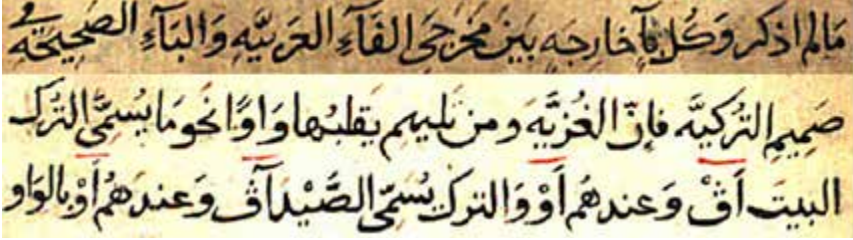 مالم اذكر وَكُل بآءٍ خارجهٍ بين مخرجى الفآءِ العربيّهِ وَالبآءِ الصحيحهِ في
صَمِيمِ التُركيَّه فإنّ الغُزيَّهَ ومن يَليهم يَقلبُها وَاوًا نحو مَا يُسمَّى التُرك
البيتَ اَڤْ وَعندهُم اَوْ وَالترك يُسمّى الصَّيْد آڤ وَعندهُم اَوْ بالوَاو